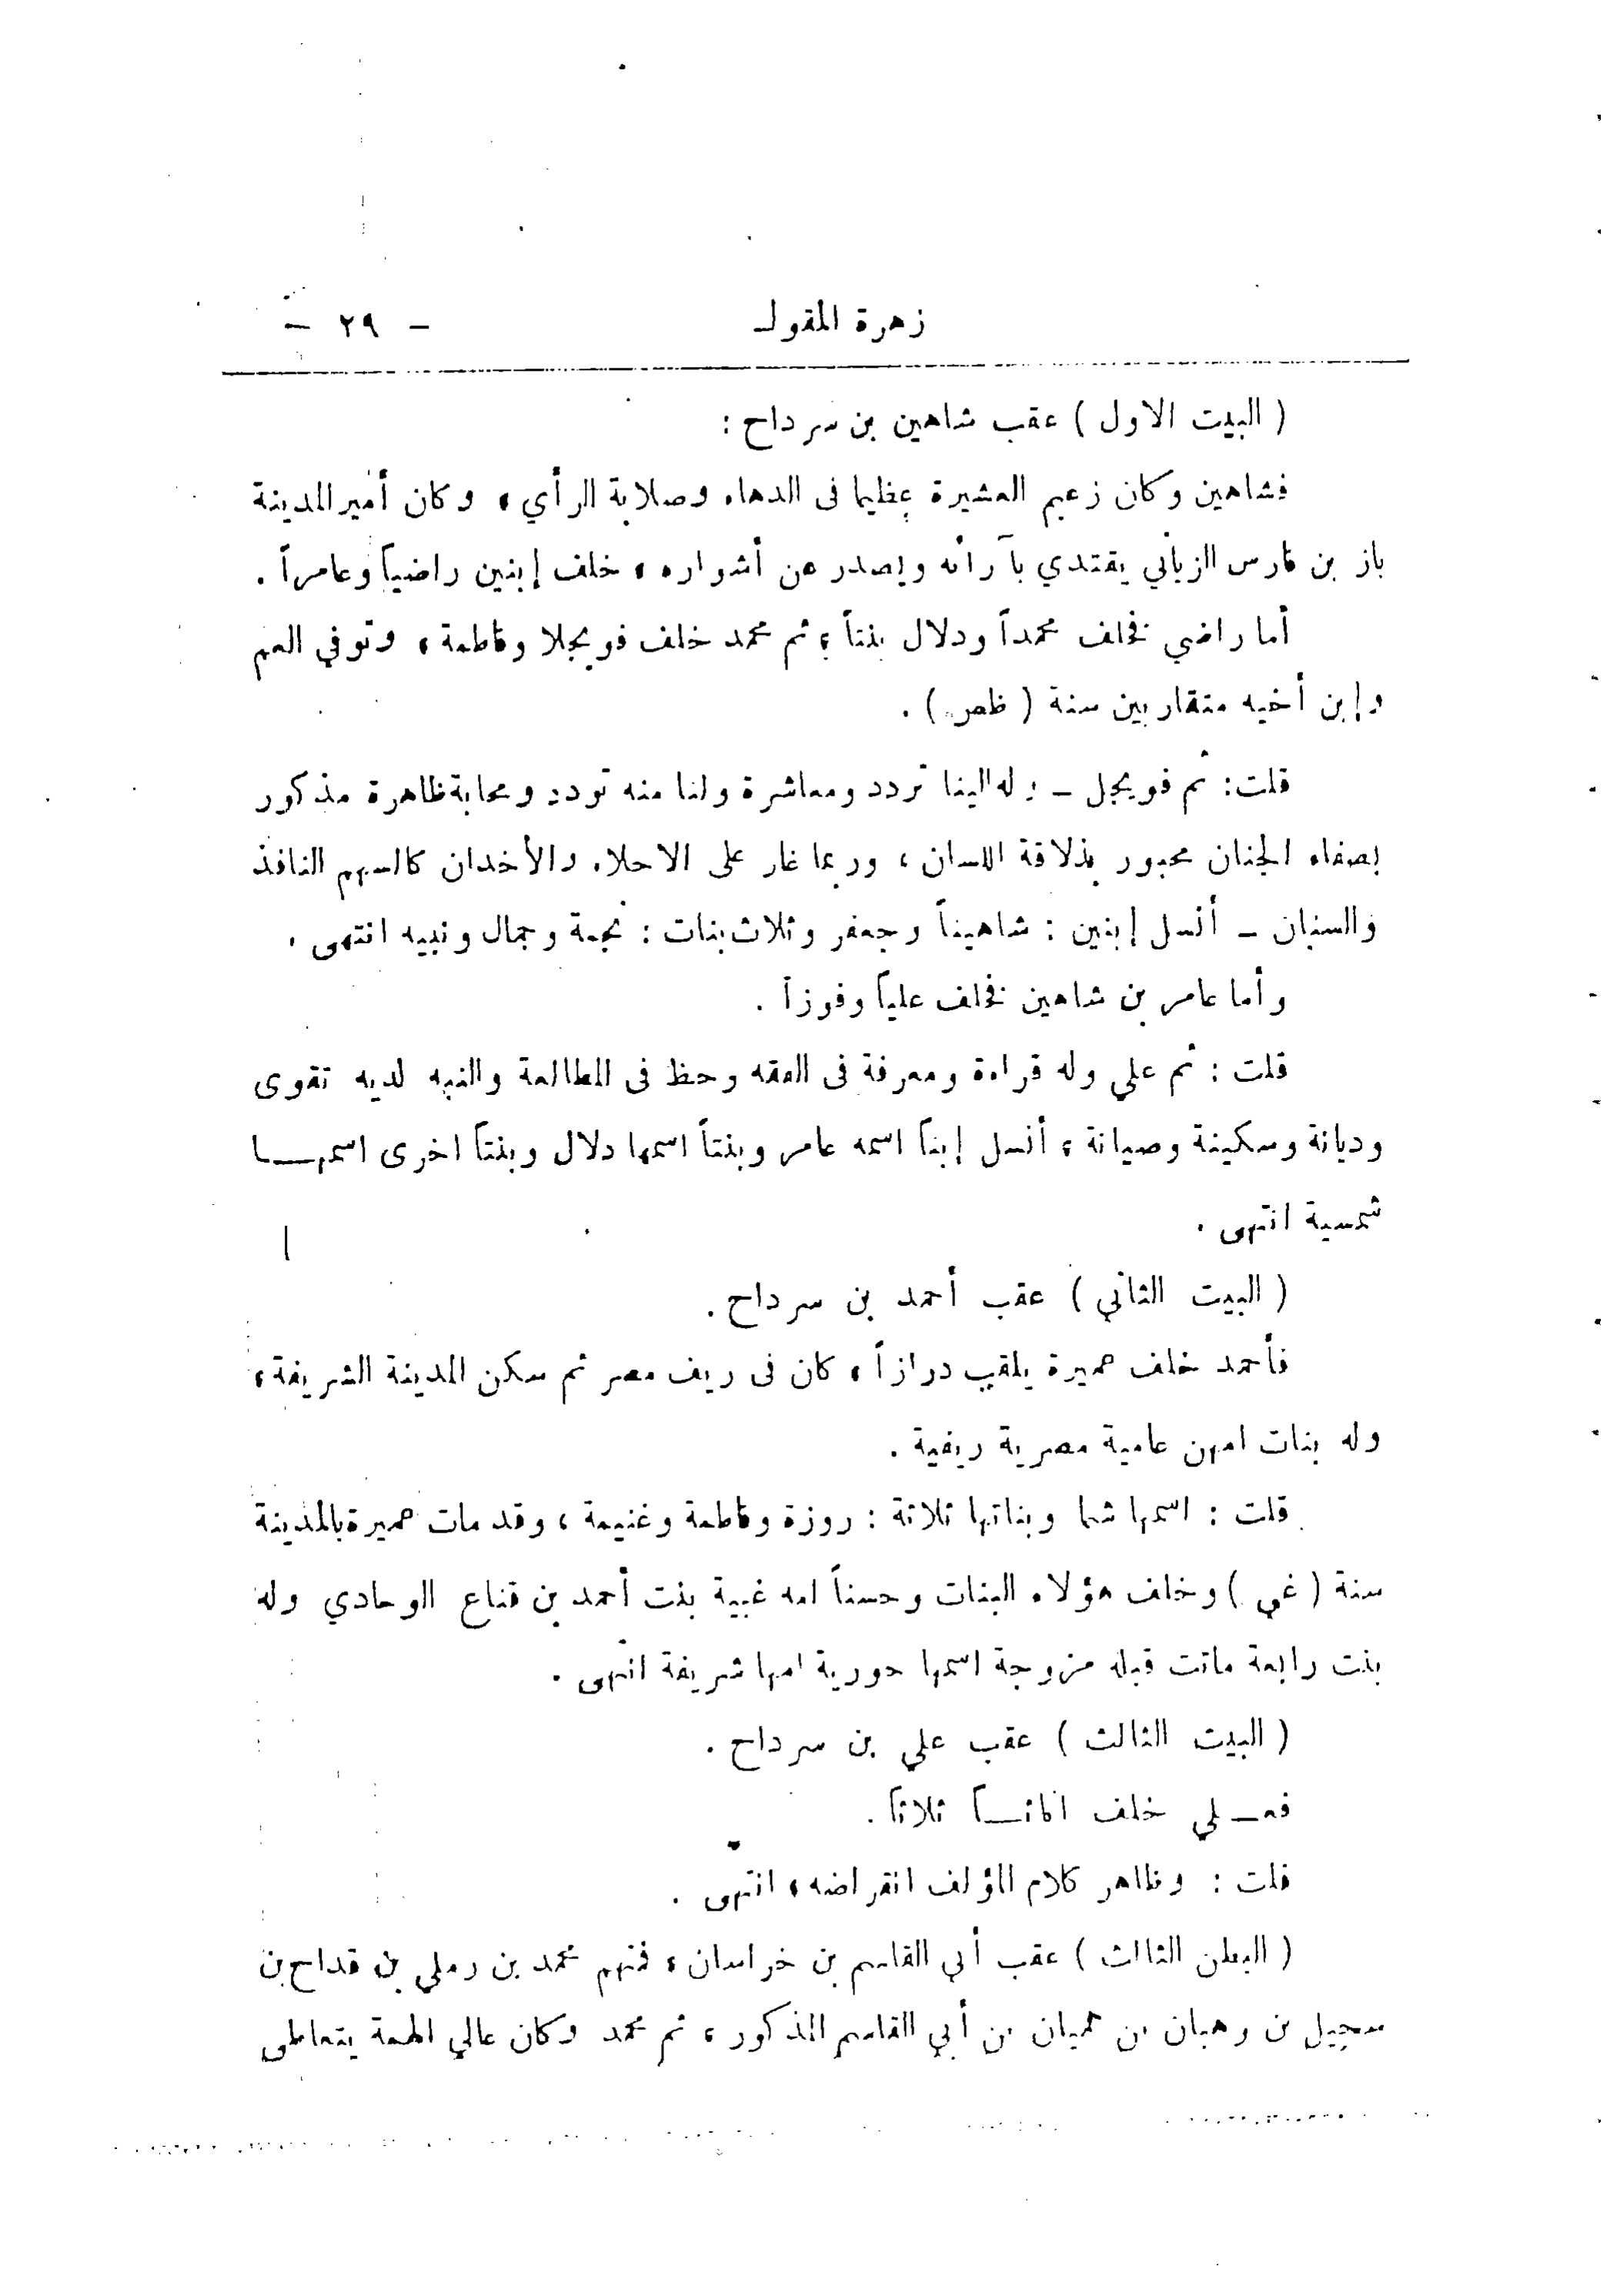 زهرة المقول
- ٢٩ -
( البيت الاول ) عقب شاهين بن سرداح :
فشاهين وكان زعيم العشيرة عظيما فى الدهاء وصلابة الرأي ، وكان أمير المدينة
باز بن فارس الزياني يقتدي بآرائه ويصدر عن أشواره ، خلف إبنين راضياً وعامراً .
أما راضي فخلف محمداً ودلال بنتاً ، ثم محمد خلف فويجلا وفاطمة ، وتوفي العم
وإبن أخيه متقاربين سنة ( ظصر ) .
قلت : ثم فويجل – وله الينا تردد ومعاشرة ولنا منه تودد ومحابة ظاهرة مذكور
بصفاء الجنان محبور بذلاقة اللسان ، وربما غار على الاحلاء والأخدان كالسهم النافذ
والسنان – أنسل إبنين : شاهيناً وجعفر وثلاث بنات : نجمة وجمال ونبيه انتهى .
وأما عامر بن شاهين فخلف علياً وفوزاً .
قلت : ثم علي وله قراءة ومعرفة فى الفقه وحظ فى المطالعة والنبه لديه تقوى
وديانة وسكينة وصيانة ، أنسل إبناً اسمه عامر وبنتاً اسمها دلال وبنتاً اخرى اسمهـــا
شمسية انتهى .
( البيت الثاني ) عقب أحمد بن سرداح .
فأحمد خلف حميرة يلقب درازاً ، كان فى ريف مصر ثم سكن المدينة الشريفة ،
وله بنات امهن عامية مصرية ريفية .
قلت : اسمها شها وبناتها ثلاثة : روزة وفاطمة وغنيمة ، وقد مات حميرة بالمدينة
سنة ( غي ) وخلف هؤلاء البنات وحسناً امه غبية بنت أحمد بن قناع الوحادي وله
بنت رابعة ماتت قبله مزوجة اسمها حورية امها شريفة انتهى .
( البيت الثالث ) عقب علي بن سرداح .
فعـــلي خلف اناثـــاً ثلاثاً .
قلت : وظاهر كلام المؤلف انقراضه ، انتهى .
( البطن الثالث ) عقب أبي القاسم بن خراسان ، فمنهم محمد بن رملي بن قداح بن
سجيل بن وهبان بن هميان بن أبي القاسم المذكور ، ثم محمد وكان عالي الهمة يتعاطى